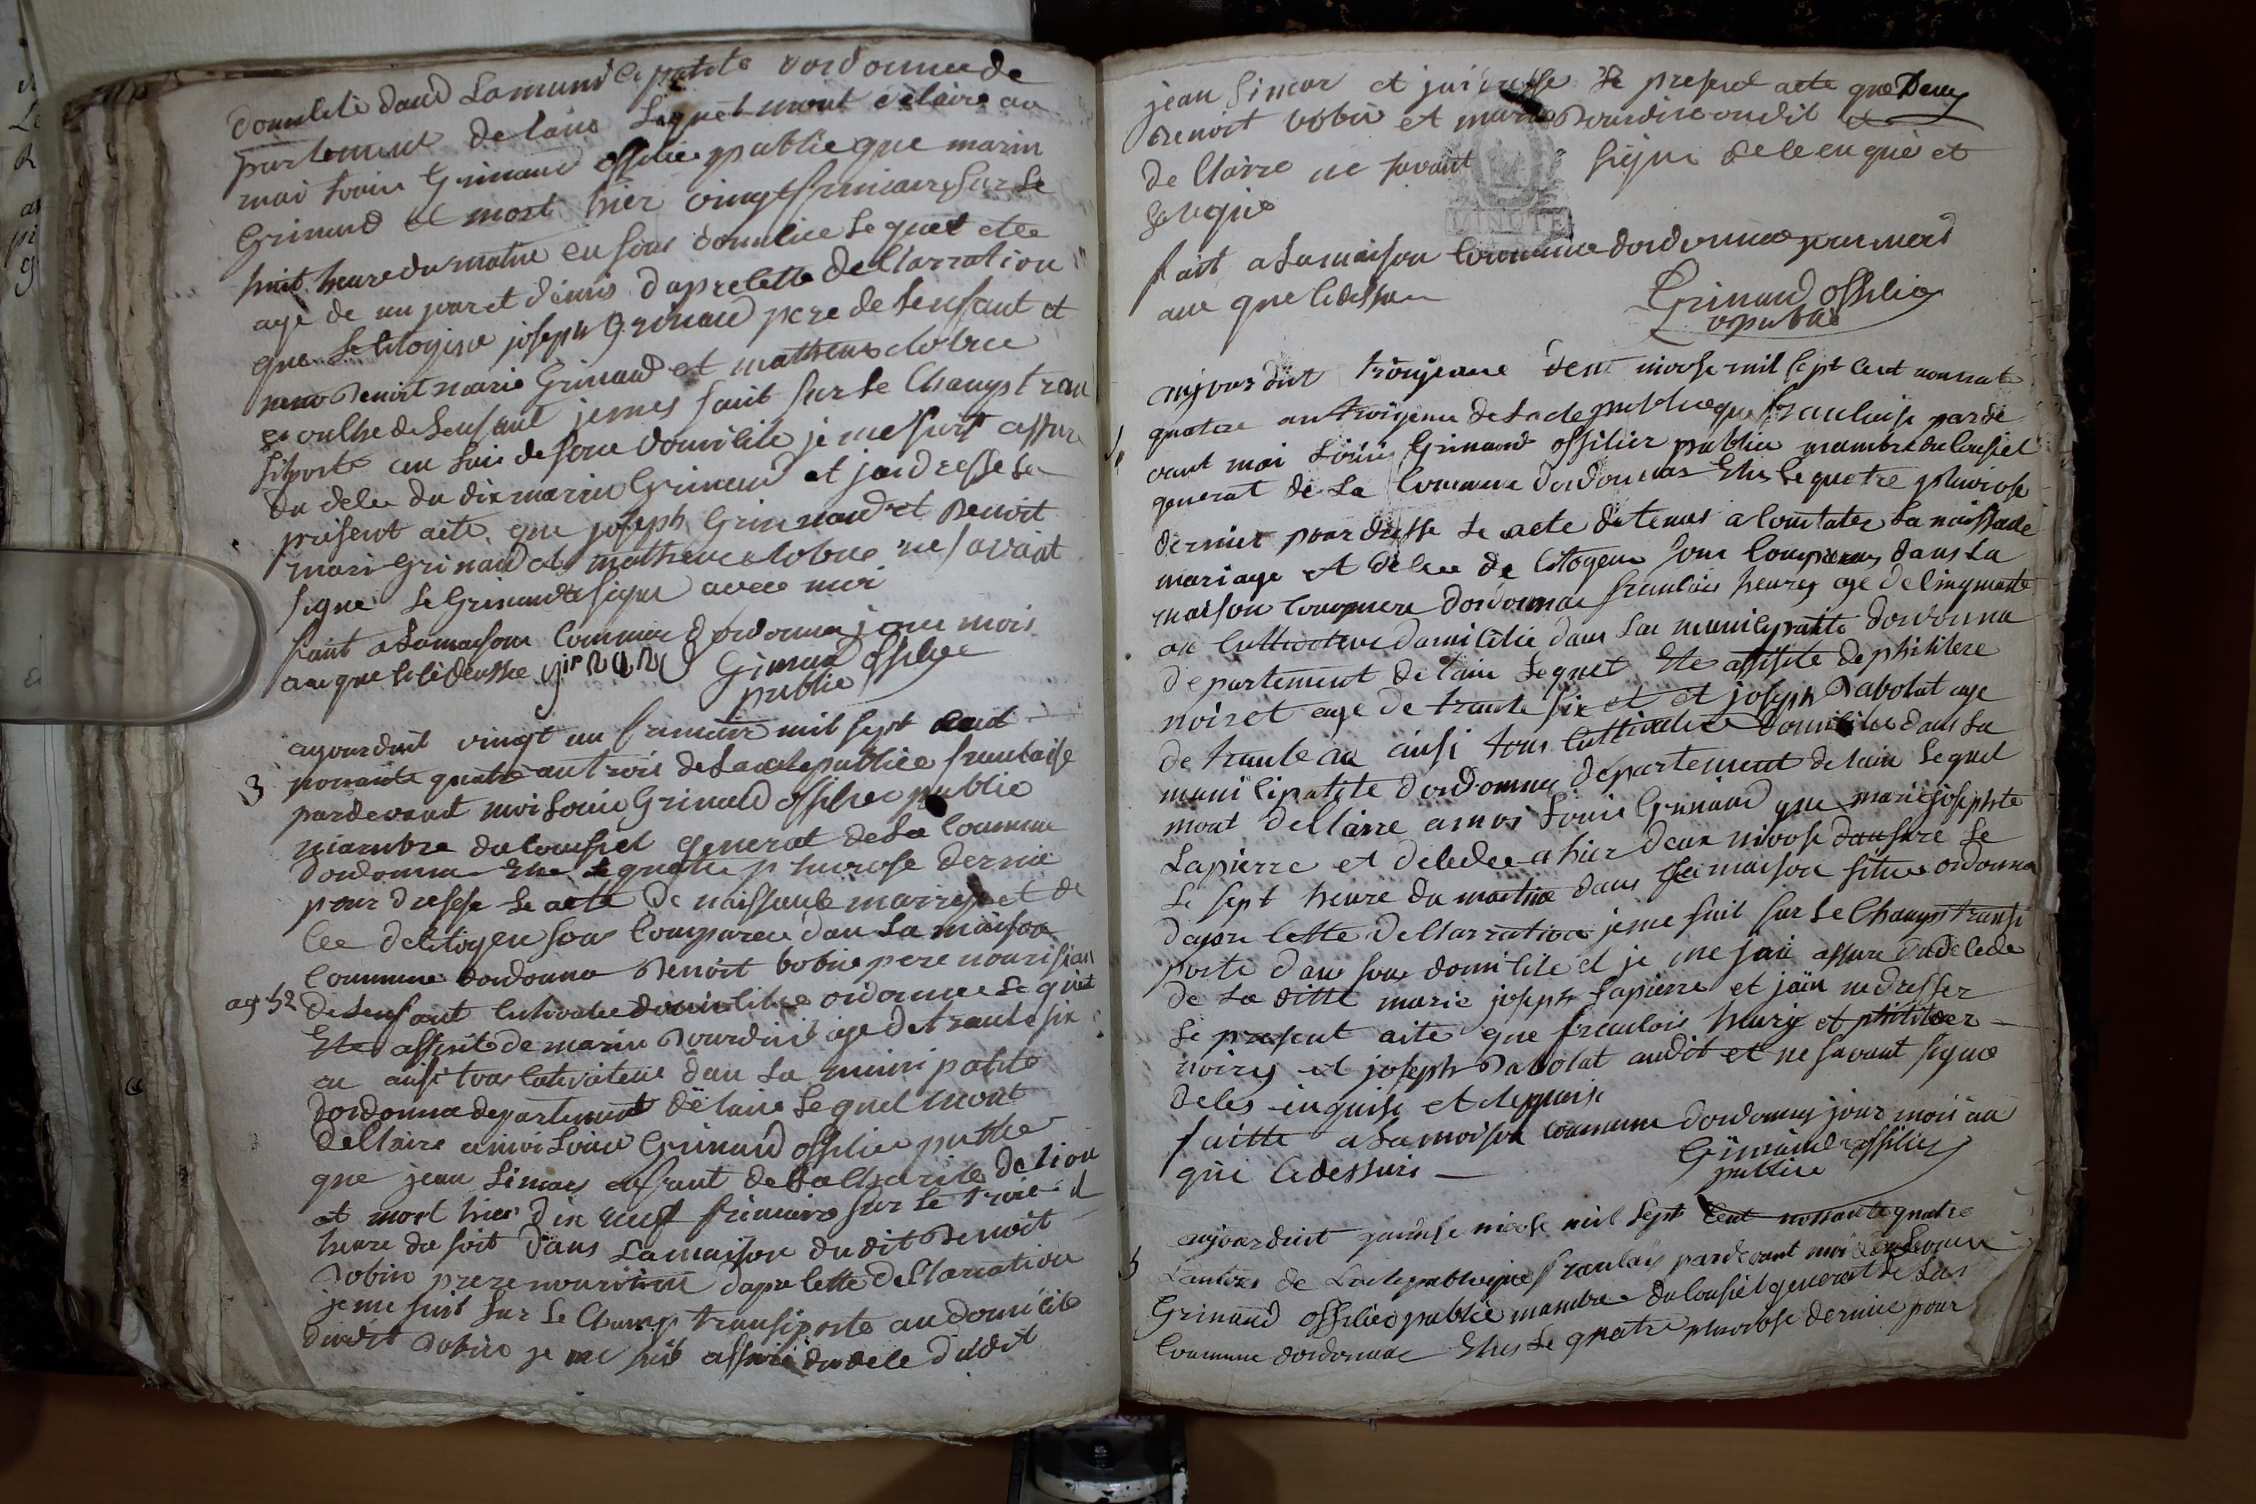 domilié dans La municipatité dordonna de
partement de laine Lequet mont déclaire au
moi Louis Grinand offilier publie que marin
Grinand et mort hier vingt frimaire sur Le
huit heure du matin en sons domilie Lequet etee
age de un jour et demis daprelette dellarration
que Le litogien joseph Grinand pere de Lenfant et
Benoit marie Grinand et
de Lenfant jemes suit sur Le Champ tran
siporte au Luis de sone domilile je me suit assure
du dele du dix marin Grinand et jai dresse Le
présent acte que joseph Grinnand et Benoit
mari Grinand et ne savoint
signe Le Grinand signe avec moi
fait a Lamaisone Commune dordonna jour mois
aue que lidessue ginand Grinand offilie
publie
aujourduit vingt un frimair mil sept cent
3 nonante quatre an trois de La republice franlaise
pardevant moi Louis Grinand offilier publie
mambre du Consiel general de La Commune
dordonna Elue Le quatre pluviose dernié
pour dresse Le acte de naissante marriage et de
lee delitogien sons Compareu dan La maison
Commune dordonna Benoit bobin pere nourisian
ag 52 de Lenfant Cultivatee domililie ordonna Lequet
Ete assisté de marin Bourdin age de trante six
an ausi tous Cultivateur dan La muni patite
dordonna departement de laine Lequel mont
dellaire amoi Louis Grinand offilier publie
que jean Simar enfant de La Charité de lion
et mort hier dix neuf frimaire sur Le trois
heure du soit dans La maison dudit Benoit
Bobin pere nourisian dapre lette dellaration
je me suit sur Le Champ transiporte au domilile
dudit Bobin je me suit assuré du dele dudit
jean Simar et jai dresse Le present acte que Deux
Benoit bobin et marin Bourdin ondit
de llaire ne savoit signe de le enquie et
Requie
MINUTE
fait a La maison Commune dordonna jour mois
aue que lidessue
Grinand offilie
publie
aujourduit troijeme deux nivose mil sept cent nonnate
quatre an troijeme de La republicque franlaise parde
vant moi Louis Grinand offilier publie mambre du Consiel
general de La Commune dordonna Elus Le quatre pluviose
dernier pour dresse Le acte detenus a Constater La naissade
mariage et delee de litogeus sone Comparus dans La
maison Commune dordonna franlois heurey age de linquante
an Cultivateur domililié dans La munilipatite dordonna
departement de laine Lequet Ete assisté de philibere
noiret age de trante six et et joseph Babolat age
de trante an ainsi tous Cultivateur domililie dans La
munilipatite dordonna departement de laine Lequel
mont dellaire a moi Louis Grinand que marie josephte
Lapierre et deledee a hier deux nivose sure Le
Le sept heure du matin dans sa maison situe ordonna
dapre lette dellarration je me suit sur Le Champ transi
porte dans sone domilile et je me sui assure du delede
de La ditte marie joseph Lapierre et jain ne dresser
Le present aite que franlois heurey et philiber
noirey et joseph Babolat audit et ne savant signe
de les enquise et
faitte a La moison commune dordonna jour mois an
qui lidessuis
Grinand offilier
publice
aujourduit nivose mil Sept Cent nonante quatre
5 Lantrois de La republique franlais pardevant moi
Grinand offilier publie mambre du Consiel general de La
Commune dordonna Elus Le quatre pluviose dernier pour